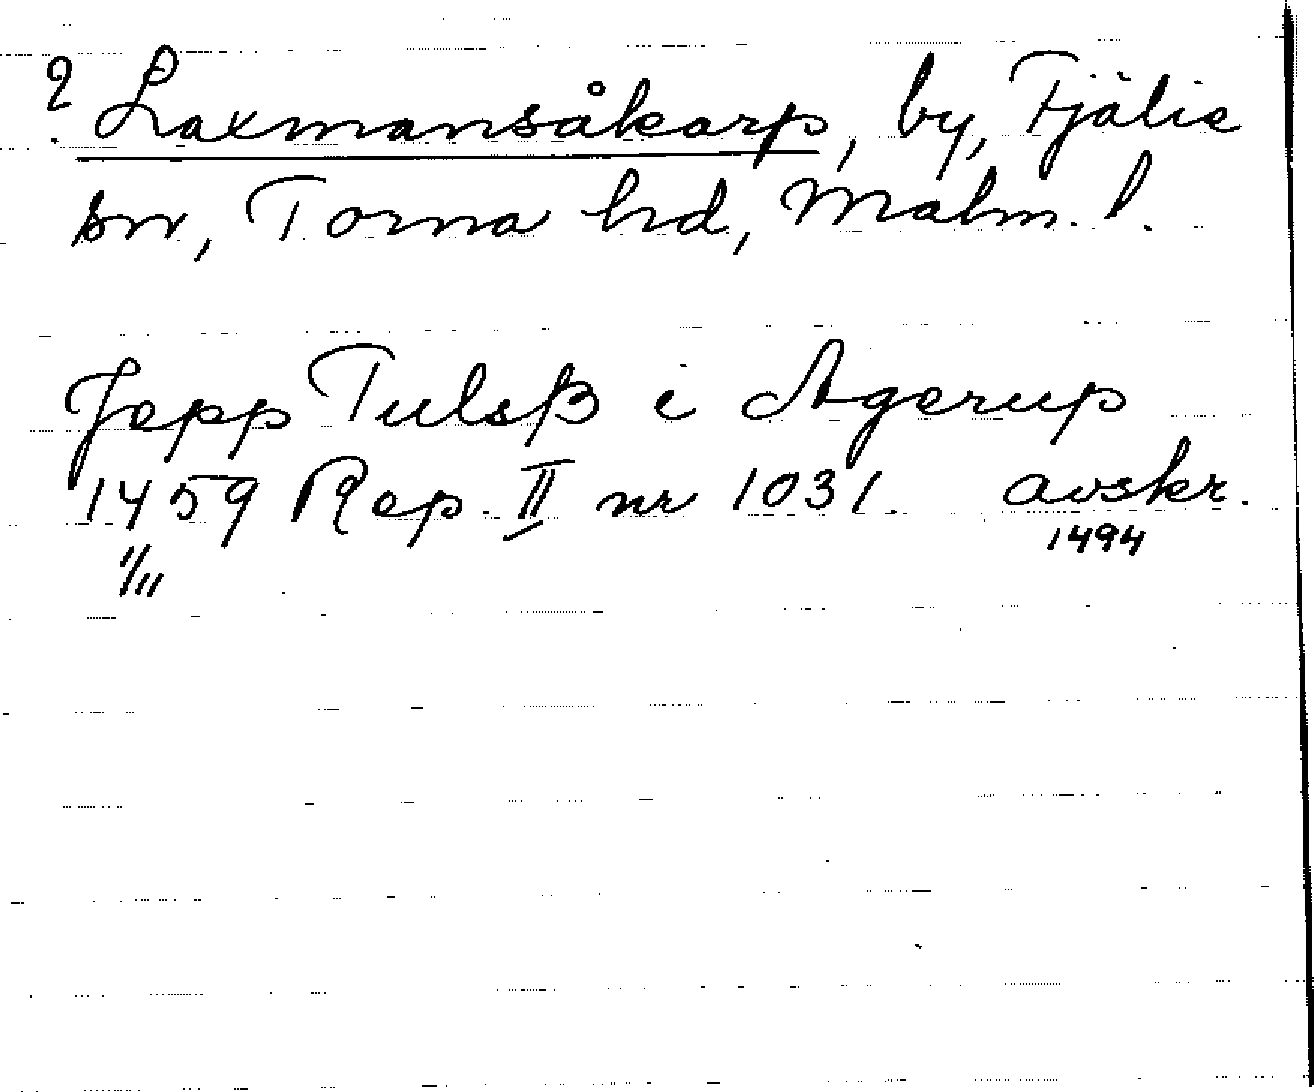 ? Laxmansåkarp, by, Fjälie
sn, Torna hd, Malm. l.
Jepp Tulsß i Agerup
1459 Rep. II nr 1031. avskr.
11/11 1494